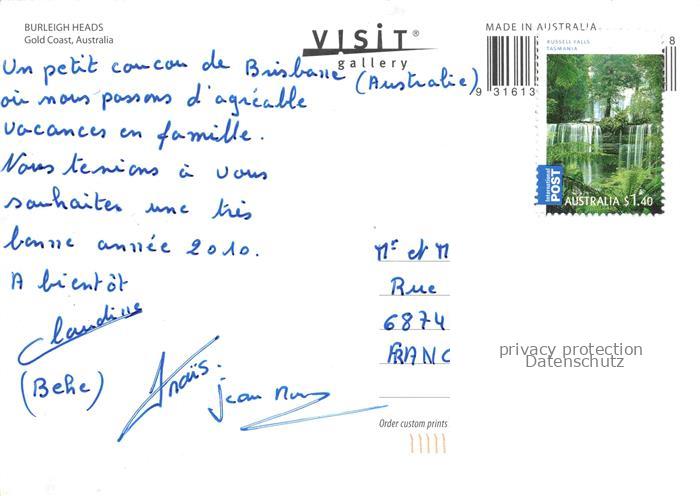 BURLEIGH HEADS
Gold Coast, Australia
VISIT®
gallery
MADE IN AUSTRALIA
8
9 31613
RUSSELL FALLS
TASMANIA
International
POST
AUSTRALIA $1.40
Un petit coucou de Brisbane (Australie)
où nous passons d'agréable
vacances en famille.
Nous tenions à vous
souhaiter une très
bonne année 2010.
A bientôt
Claudine
(Behe)
Anaïs.
jean
Mr et M
Rue
6874
FRANC
privacy protection
Datenschutz
Order custom prints